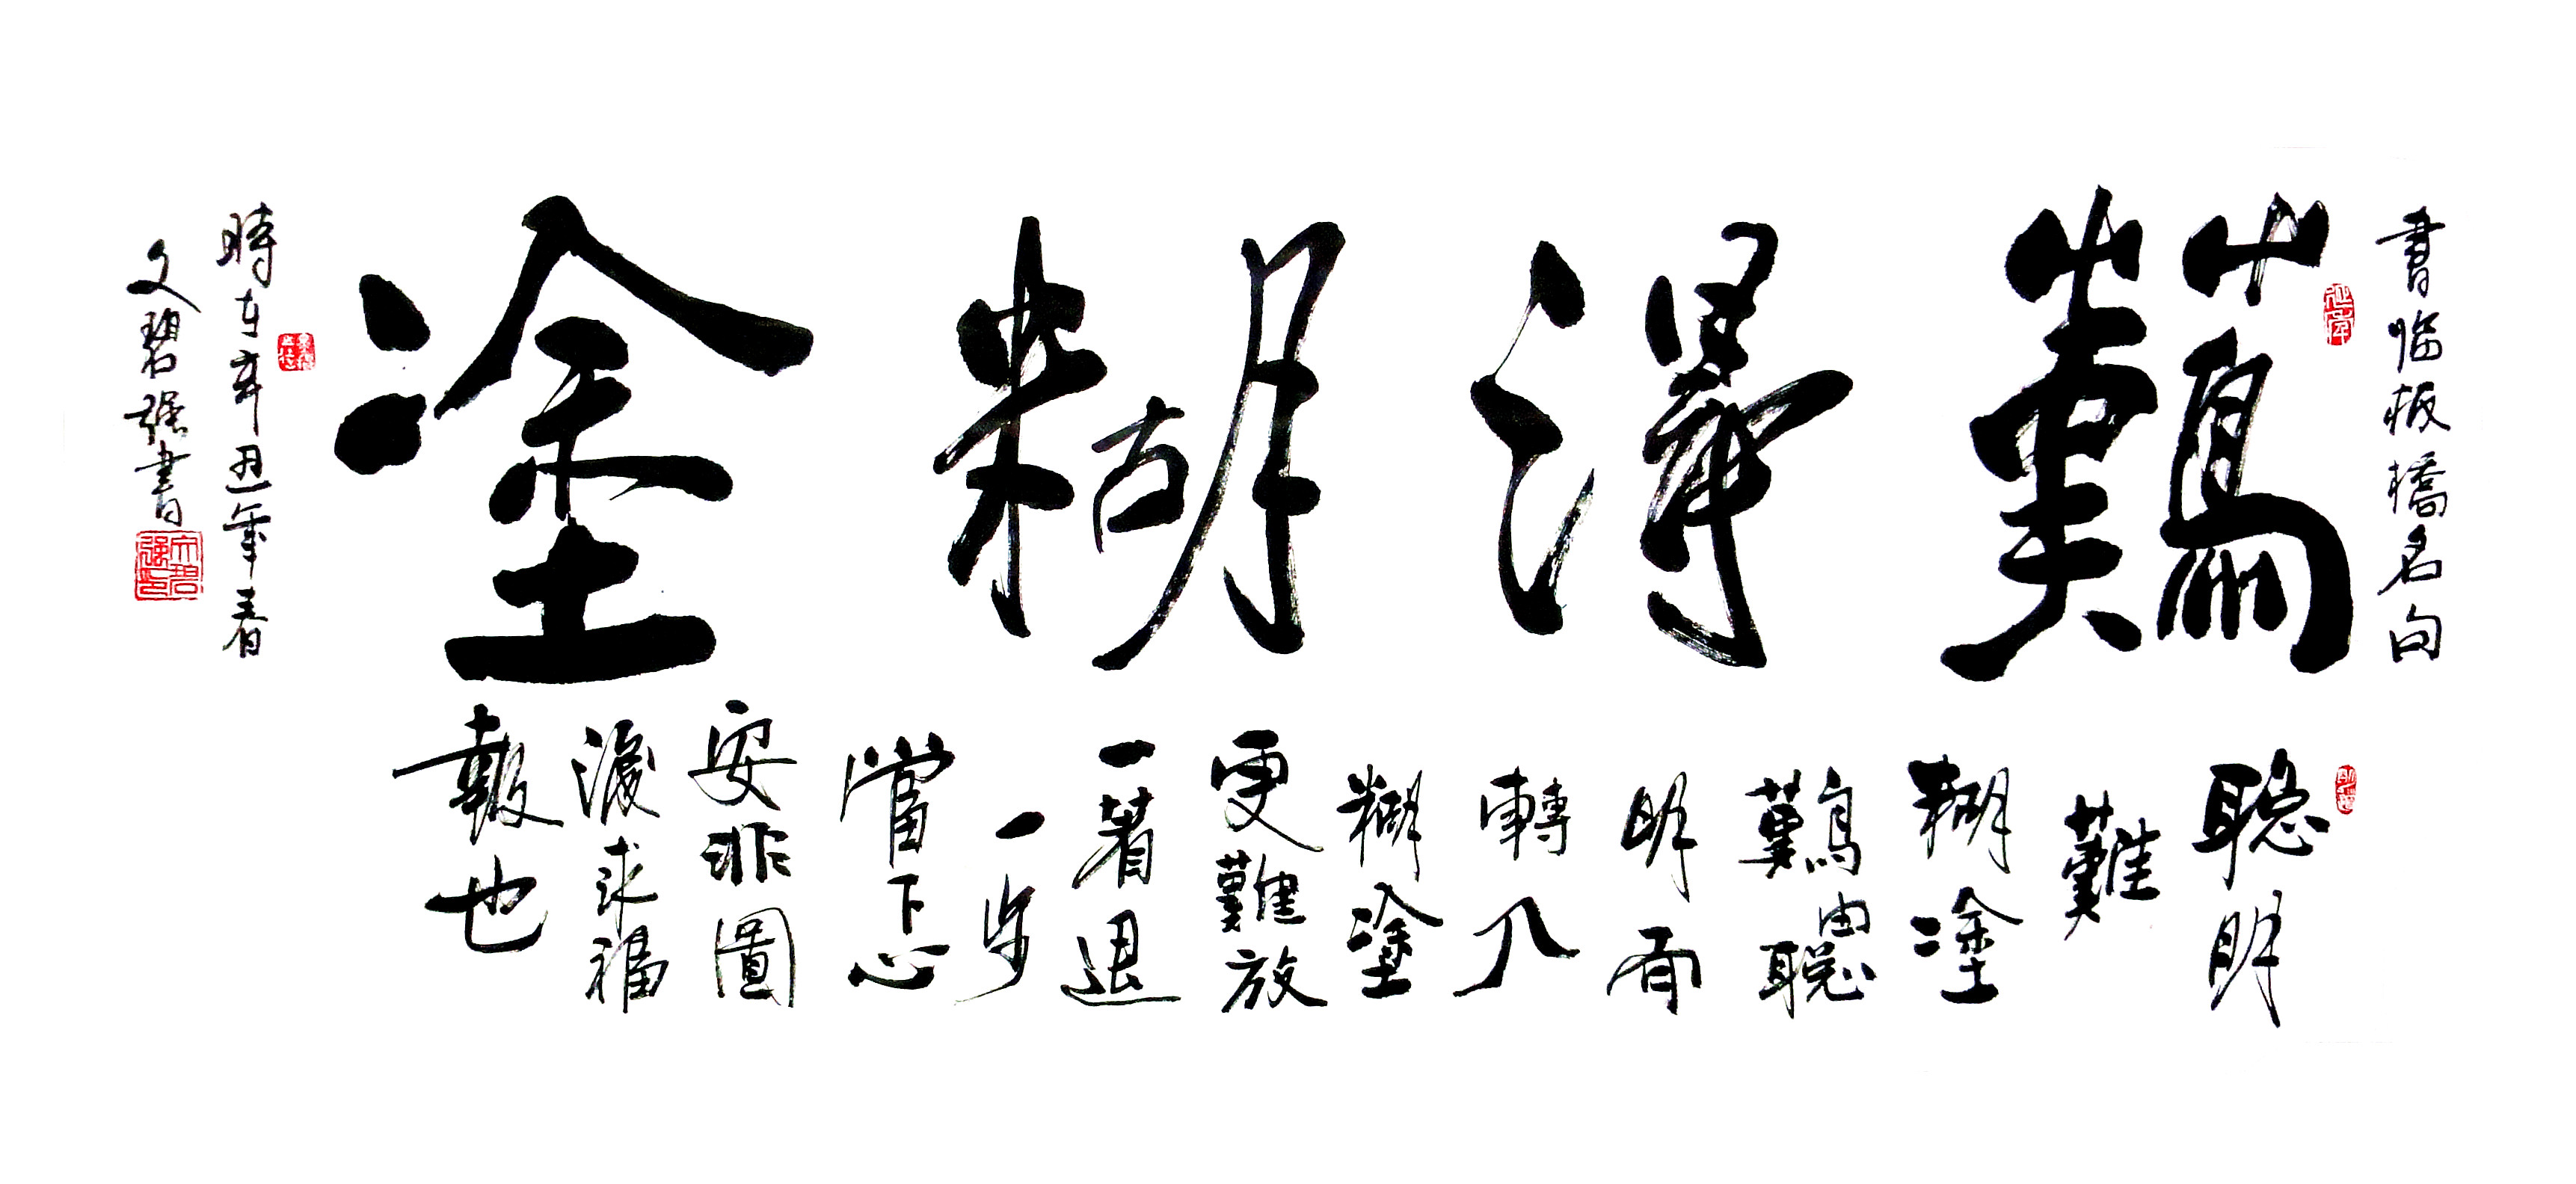 書临板橋名句
難得糊塗
聰明
難
糊塗
難由聰
明而
轉入
糊塗
更難放
一著退
一步
當下心
安非圖
後来福
報也
時在辛丑年春
文碧强書
文碧强印